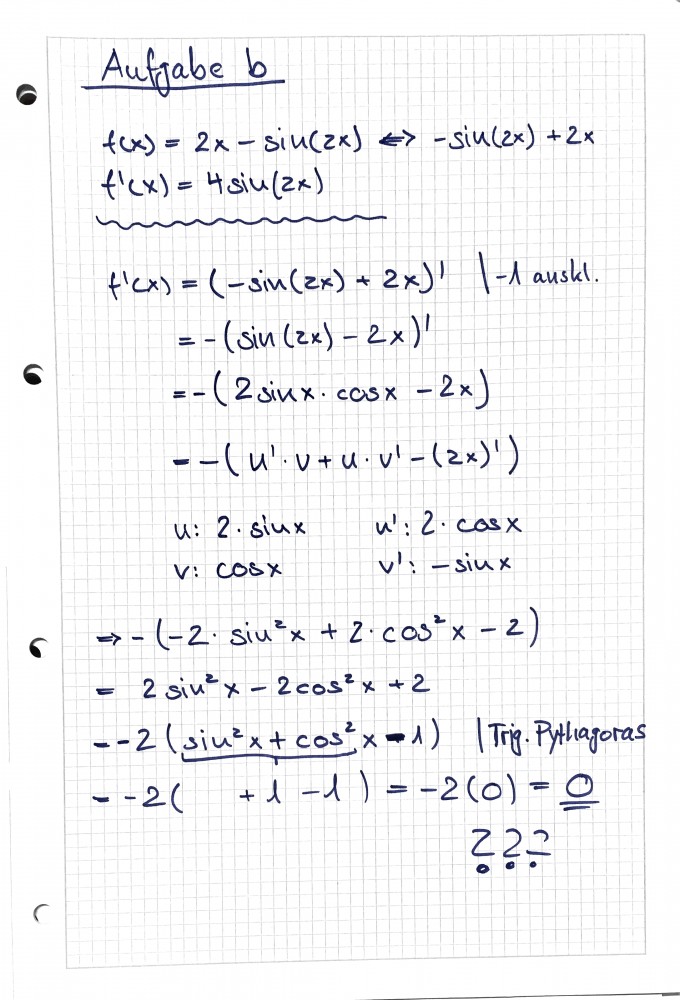 Aufgabe b
f(x) = 2x - sin(2x) ⇔ -sin(2x) + 2x
f'(x) = 4sin(2x)
f'(x) = (-sin(2x) + 2x)' | -1 auskl.
= -(sin(2x) - 2x)'
= -(2sinx · cosx - 2x)
= -(u' · v + u · v' - (2x)')
u: 2 · sinx u': 2 · cosx
v: cosx v': -sinx
⇒ -(-2 · sin²x + 2 · cos²x - 2)
= 2sin²x - 2cos²x + 2
= -2(sin²x + cos²x - 1) | Trig. Pythagoras
= -2( +1 -1) = -2(0) = 0
???